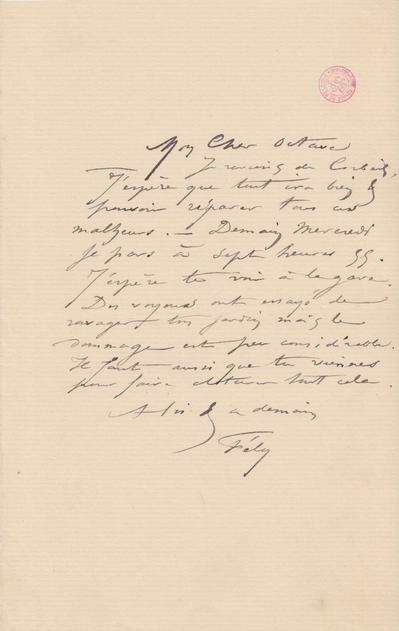 Mon Cher Octave
Je reviens de Corbeil,
J'espère que tout ira bien &
pouvoir réparer tous ces
malheurs. — Demain Mercredi
je pars à sept heures
J'espère te voir à la gare.
Des voyous ont essayé de
ravager ton jardin mais le
dommage est peu considérable.
Il faut aussi que tu viennes
pour faire clôturer tout cela.
A toi & a demain
Fély